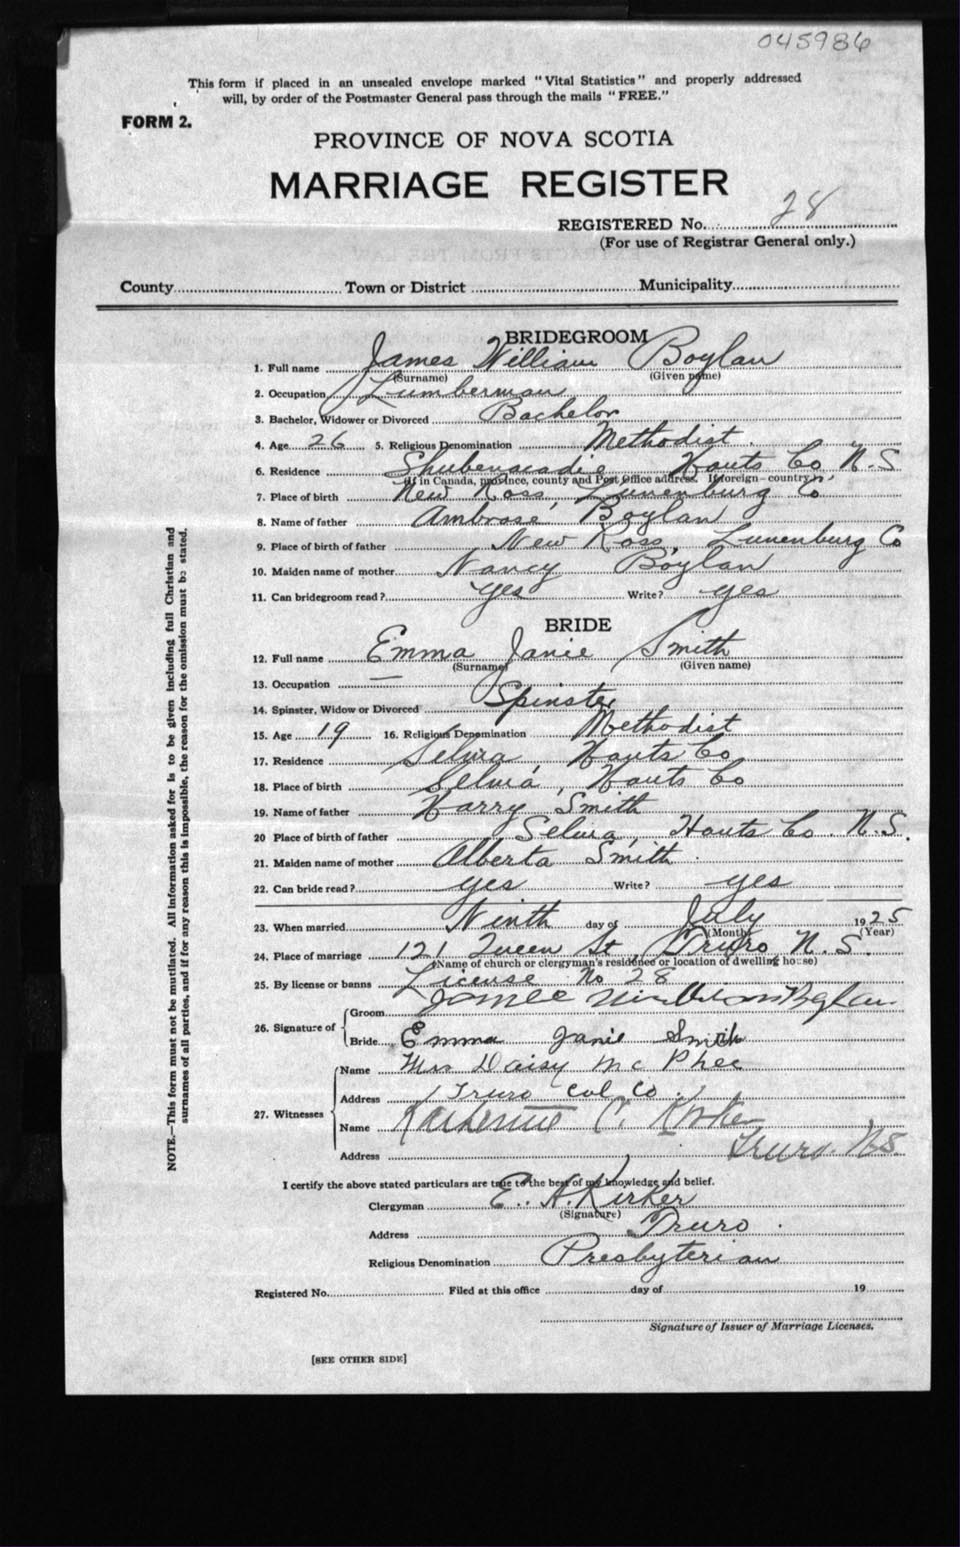 045986
This form if placed in an unsealed envelope marked "Vital Statistics" and properly addressed
will, by order of the Postmaster General pass through the mails "FREE."
FORM 2.
PROVINCE OF NOVA SCOTIA
MARRIAGE REGISTER
REGISTERED No. 28
(For use of Registrar General only.)
County Town or District Municipality
BRIDEGROOM
1. Full name James William Boylan
(Surname) (Given name)
2. Occupation Lumberman
3. Bachelor, Widower or Divorced Bachelor
4. Age 26 5. Religious Denomination Methodist.
6. Residence Shubenacadie Hants Co N.S
(If in Canada, province, county and Post Office address. If foreign—country)
7. Place of birth New Ross, Lunenburg Co
8. Name of father Ambrose Boylan
9. Place of birth of father New Ross, Lunenburg Co
10. Maiden name of mother Nancy Boylan
11. Can bridegroom read? yes Write? yes
BRIDE
12. Full name Emma Janie Smith
(Surname) (Given name)
13. Occupation —
14. Spinster, Widow or Divorced Spinster
15. Age 19 16. Religious Denomination Methodist
17. Residence Selma, Hants Co
18. Place of birth Selma, Hants Co
19. Name of father Harry Smith
20 Place of birth of father Selma, Hants Co. N.S.
21. Maiden name of mother Alberta Smith
22. Can bride read? yes Write? yes
23. When married Ninth day of July 1925
(Month) (Year)
24. Place of marriage 121 Queen St, Truro N.S.
(Name of church or clergyman's residence or location of dwelling house)
25. By license or banns License No 28
26. Signature of Groom James William Boylan
Bride Emma Janie Smith
27. Witnesses Name Mrs Daisy McPhee
Address Truro Col Co.
Name Katherine C. Kirker
Address Truro. N.S.
I certify the above stated particulars are true to the best of my knowledge and belief.
Clergyman E. A. Kirker
(Signature)
Address Truro.
Religious Denomination Presbyterian
Registered No. Filed at this office day of 19
Signature of Issuer of Marriage Licenses.
[SEE OTHER SIDE]
NOTE.—This form must not be mutilated. All information asked for is to be given including full Christian and
surnames of all parties, and if for any reason this is impossible, the reason for the omission must be stated.